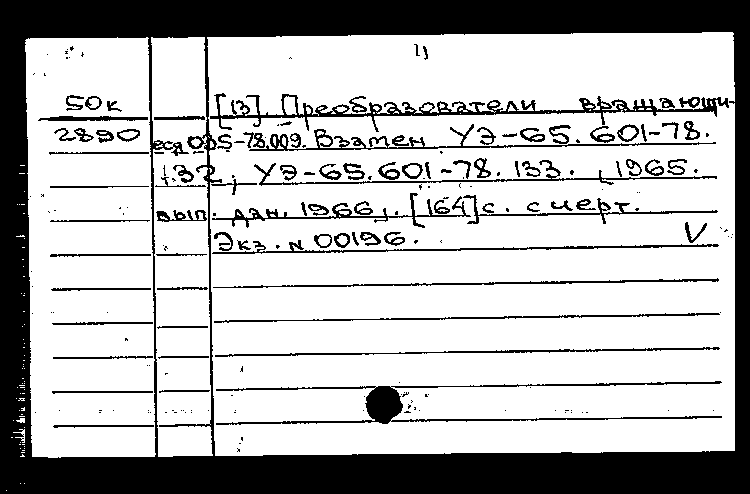 2)
50к [13]. Преобразователи вращающи-
2890 еся 035-78.009. Взамен УЭ-65.601-78.
132; УЭ-65.601-78.133. [1965.
вып. дан. 1966]. [164]с. с черт.
Экз. N 00196. V